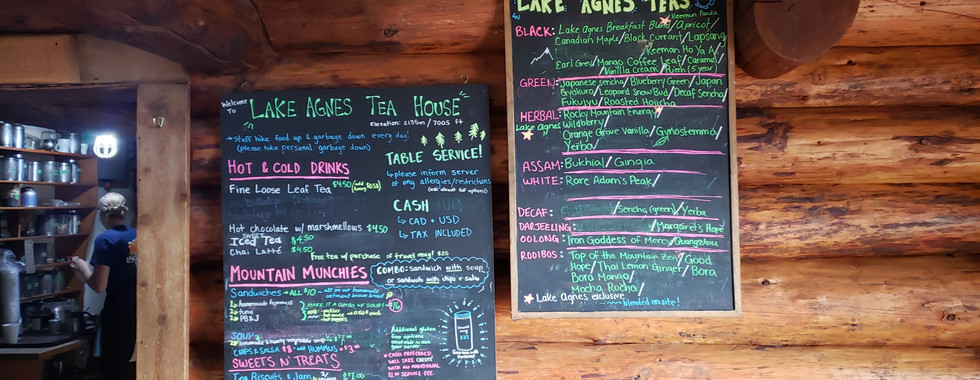 Welcome To
LAKE AGNES TEA HOUSE
Elevation: 2135m / 7005 ft
→ Staff hike food up & garbage down every day!
(please hike personal garbage down)
HOT & COLD DRINKS
Fine Loose Leaf Tea $4.50
Hot chocolate w/ marshmellows $4.50
Iced Tea $4.50
Chai Latté $4.50
Free tea w/ purchase of travel mug! $25
TABLE SERVICE!
please inform server
of any allergies/restrictions
CASH
CAD + USD
TAX INCLUDED
MOUNTAIN MUNCHIES
COMBO: Sandwich with soup
or sandwich with chips + salsa
Sandwiches → ALL $10
homemade hummus
tuna
PB&J
MAKE IT A COMBO w/ SOUP!
$16
SOUP
CHIPS & SALSA $8
HUMMUS
SWEETS N' TREATS
Tea Biscuits & Jam
$7.00
Additional gluten
CASH PREFERRED,
WILL TAKE CREDIT
WITH AN ADDITIONAL
SERVICE FEE.
LAKE AGNES TEAS
Keemun Panda
BLACK: Lake Agnes Breakfast Blend/Apricot/
Canadian Maple/Black Currant/Lapsang
Keemun Ho Ya A/
Earl Grey/Mango Coffee Leaf/Caramel
Vanilla Cream/Puerh (5 year)
GREEN: Japanese sencha/Blueberry Green/Japan
Gyokuro/Leopard Snow Bud/Decaf Sencha/
Fukujyu/Roasted Hojicha
HERBAL: Rocky Mountain Energy/
Lake Agnes Wildberry/
Orange Grove Vanilla/Gynostemma/
Yerba/
ASSAM: Bukhial/Gingia
WHITE: Rare Adam's Peak/
DECAF: /Sencha (green)/Yerba
DARJEELING: /Margaret's Hope
OOLONG: Iron Goddess of Mercy/Guangzhou
ROOIBOS: Top of the Mountain Zen/Good
Hope/Thai Lemon Ginger/Bora
Bora Mango/
Mocha Rocha/
Lake Agnes exclusive
blended on-site!